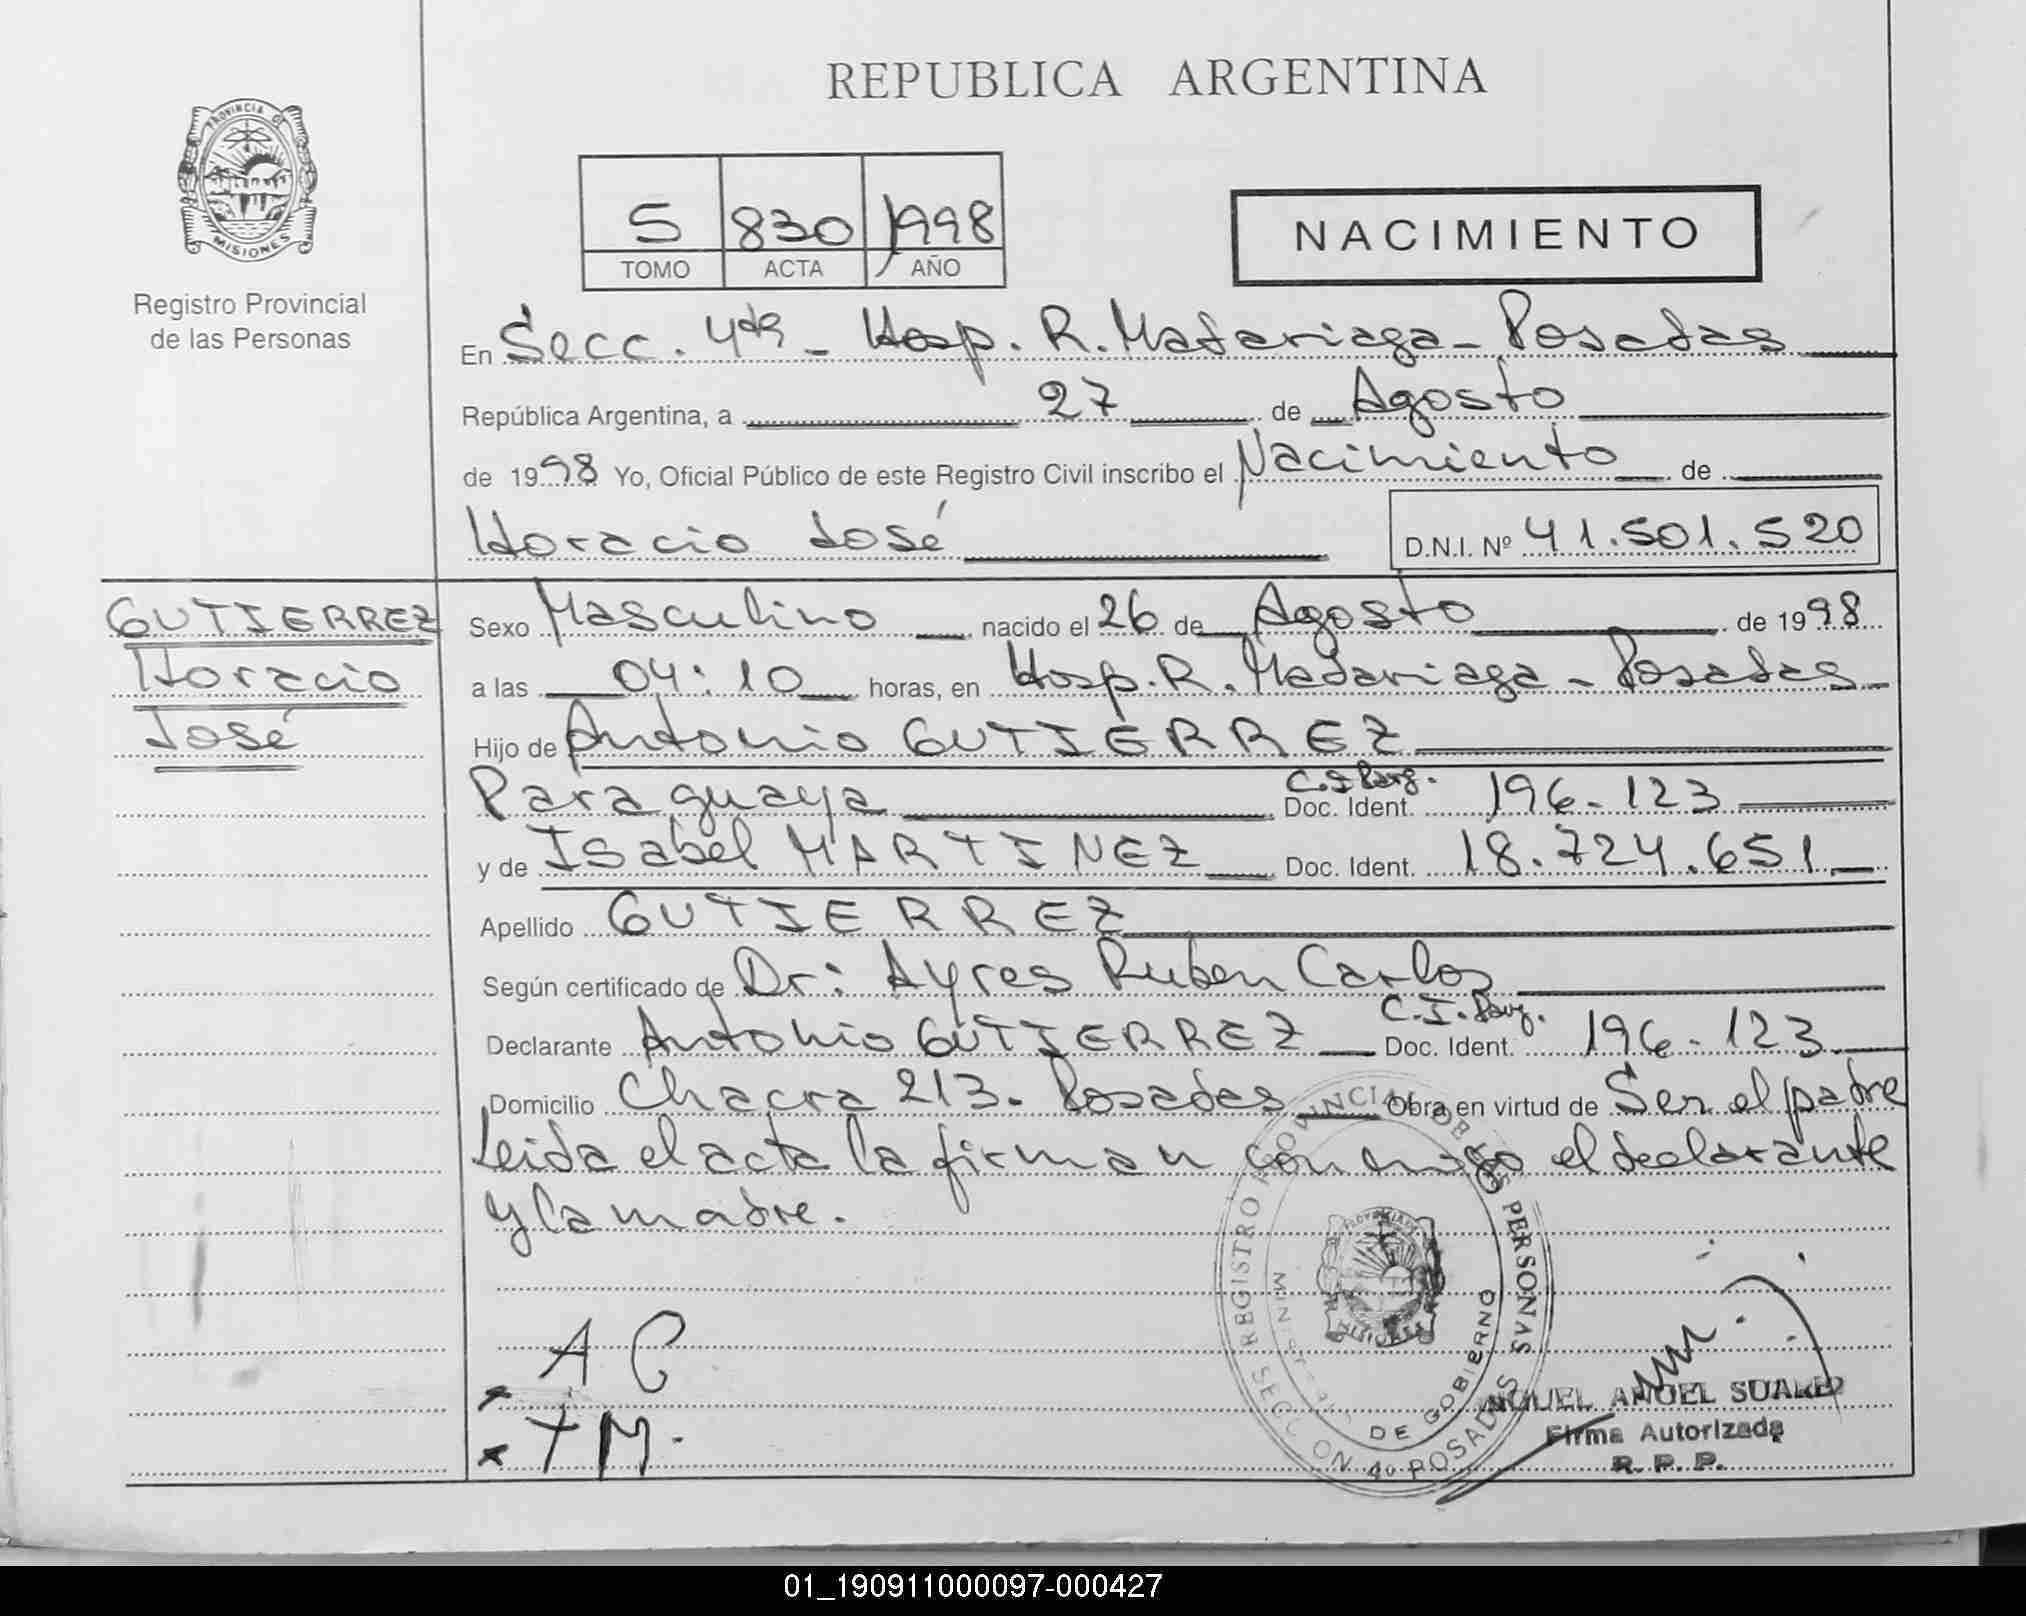 REPUBLICA ARGENTINA
PROVINCIA DE
MISIONES
Registro Provincial
de las Personas
5 830 1998
TOMO ACTA AÑO
NACIMIENTO
En Secc. 4ta - Hosp. R. Madariaga - Posadas
República Argentina, a 27 de Agosto
de 1998 Yo, Oficial Público de este Registro Civil inscribo el Nacimiento de
Horacio José D.N.I. Nº 41.501.520
GUTIERREZ
Horacio
José
Sexo Masculino nacido el 26 de Agosto de 1998
a las 04:10 horas, en Hosp. R. Madariaga - Posadas
Hijo de Antonio GUTIERREZ
Paraguaya C.I Parg. Doc. Ident. 196.123
y de Isabel MARTINEZ Doc. Ident. 18.724.651
Apellido GUTIERREZ
Según certificado de Dr: Ayres Ruben Carlos
Declarante Antonio GUTIERREZ C.I. Parg. Doc. Ident. 196.123
Domicilio Chacra 213. Posadas Obra en virtud de Ser el padre
Leida el acta la firman conmigo el declarante
y la madre.
REGISTRO PROVINCIAL DE LAS PERSONAS
MINISTERIO DE GOBIERNO
SECCION 4º POSADAS
MISIONES
A G
MIGUEL ANGEL SUAREZ
Firma Autorizada
R. P. P.
01_190911000097-000427